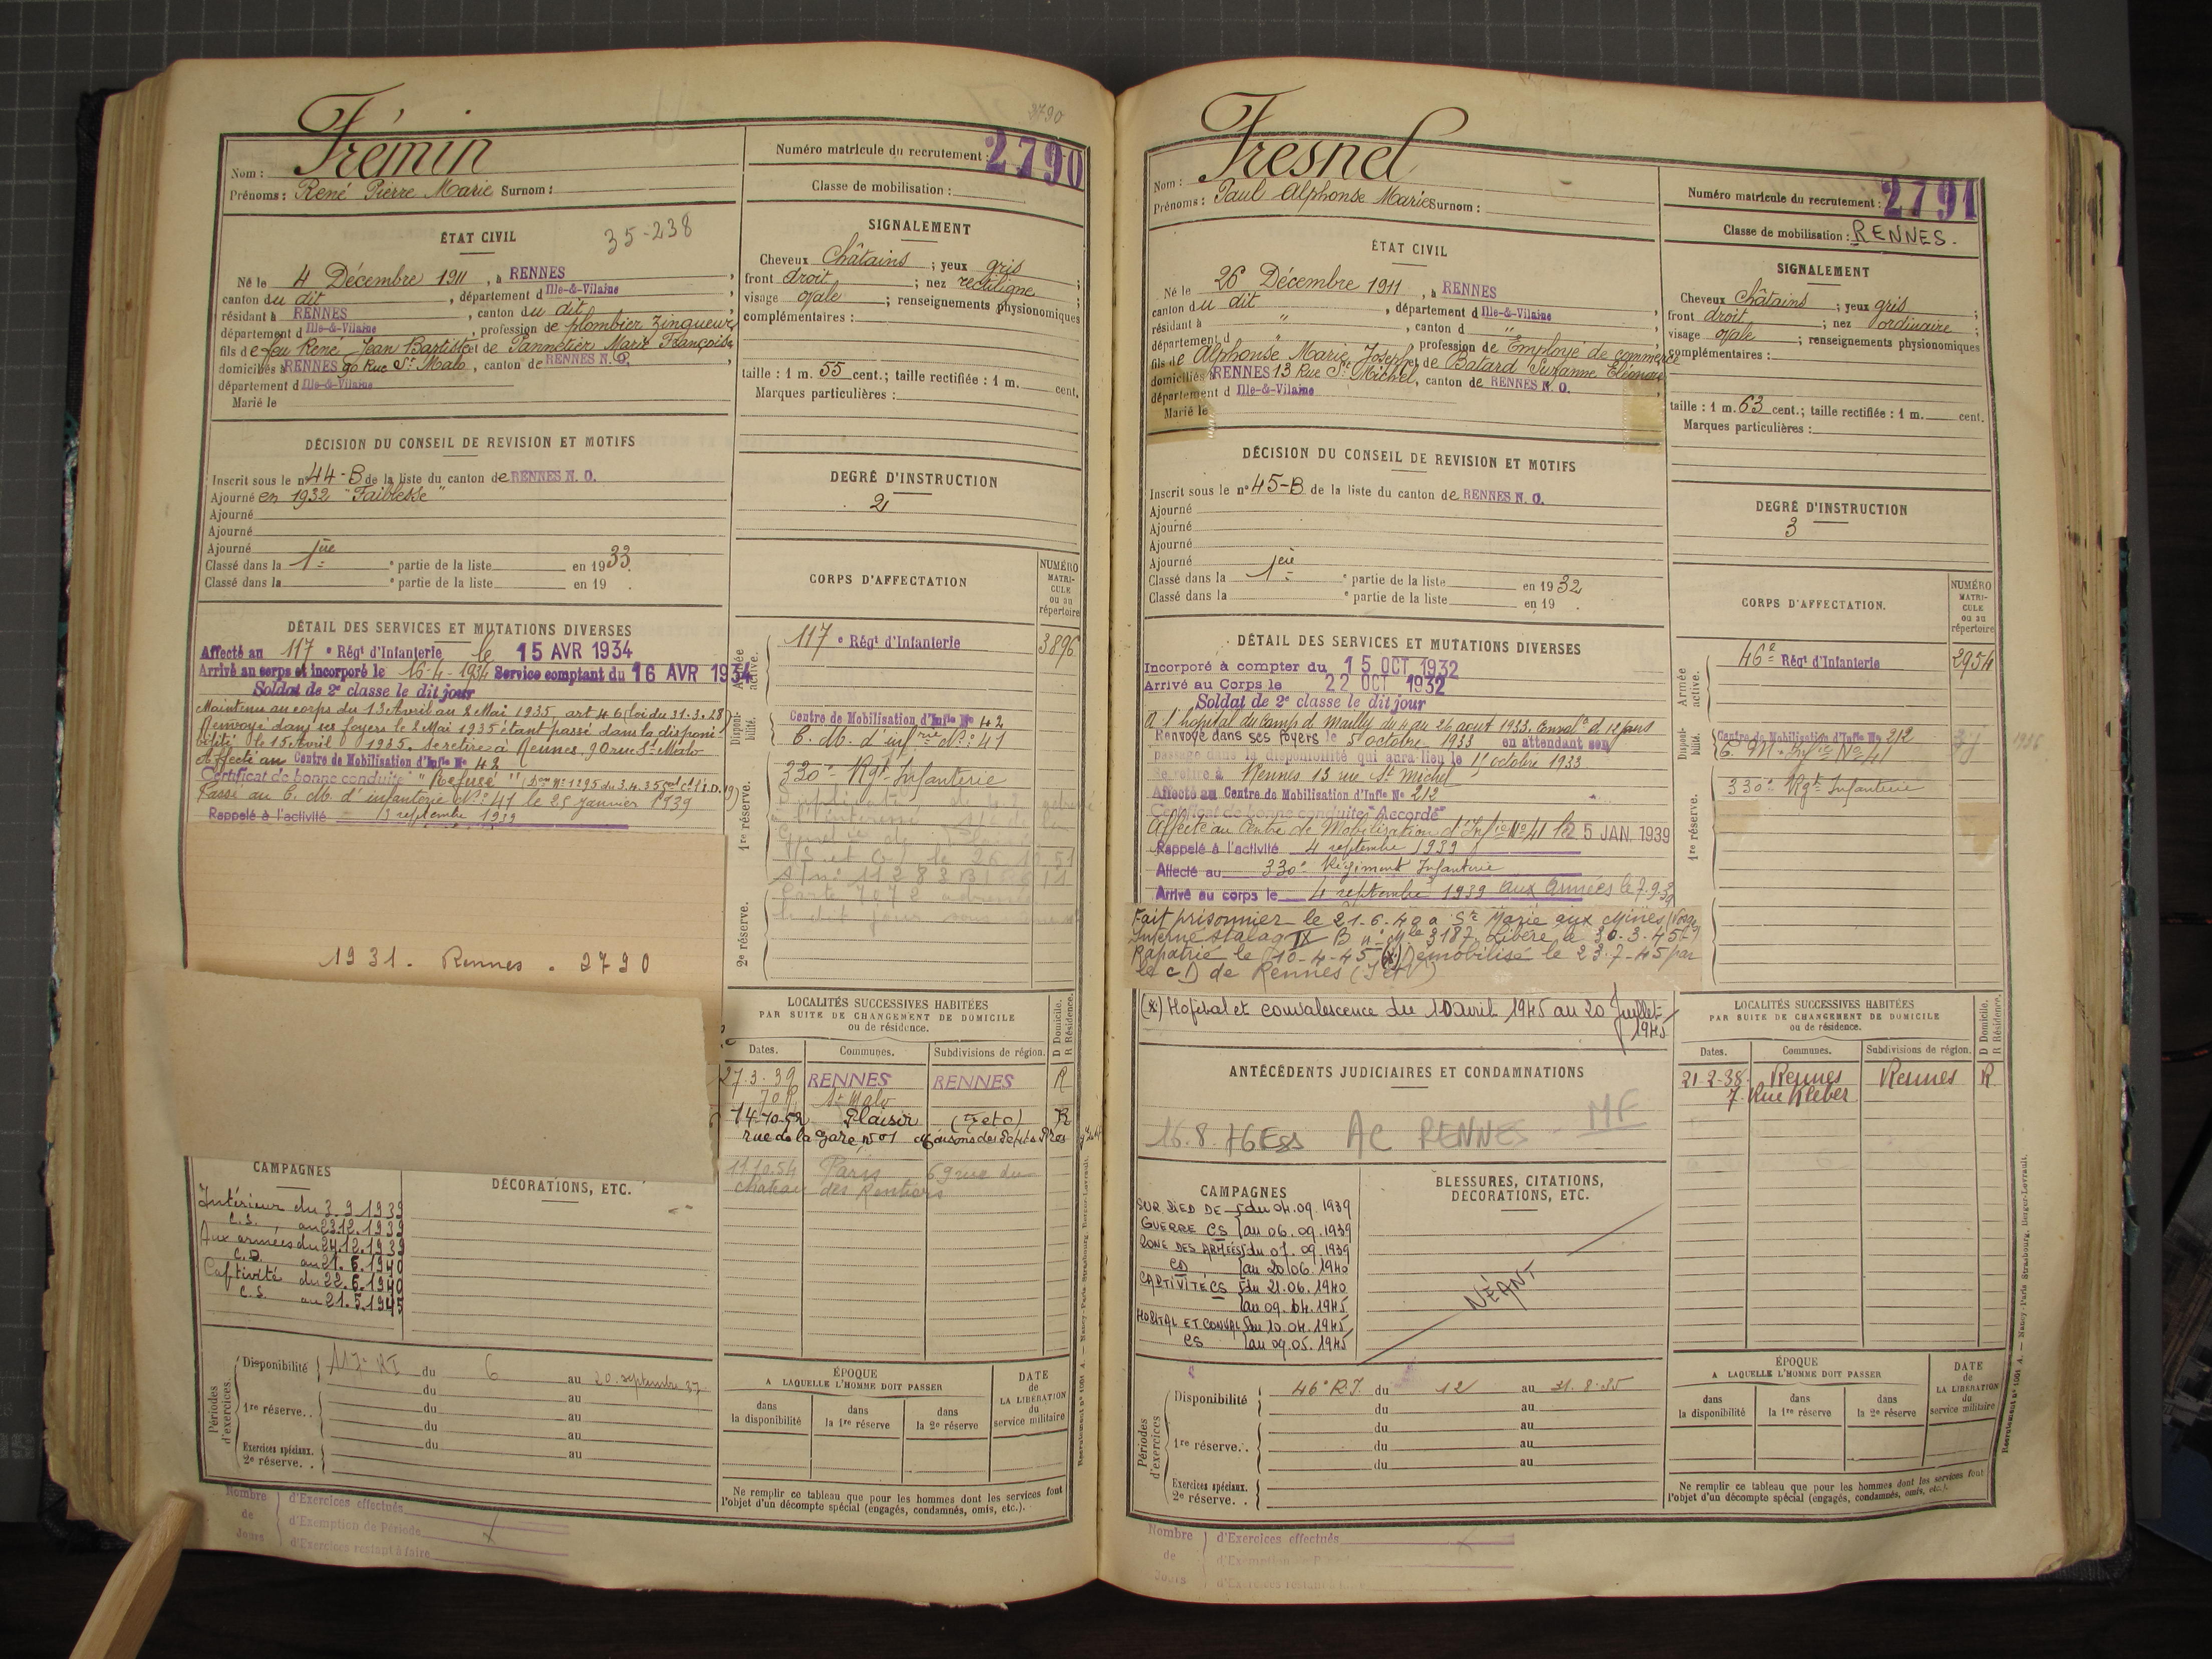 3790
Frémin
Nom :
Prénoms : René Pierre Marie Surnom :
Numéro matricule du recrutement : 2790
Classe de mobilisation :
ÉTAT CIVIL
35-238
Né le 4 Décembre 1911, à RENNES,
canton du dit, département d Ille-&-Vilaine,
résidant à RENNES, canton du dit,
département d Ille-&-Vilaine, profession de plombier zingueur
fils de feu René Jean Baptiste et de Pannetier Marie Françoise
domiciliés à RENNES 90 Rue St Malo, canton de RENNES N. O.,
département d Ille-&-Vilaine
Marié le
SIGNALEMENT
Cheveux Châtains ; yeux gris
front droit ; nez rectiligne ;
visage ovale ; renseignements physionomiques
complémentaires :
taille : 1 m. 55 cent.; taille rectifiée : 1 m. cent.
Marques particulières :
DÉCISION DU CONSEIL DE REVISION ET MOTIFS
Inscrit sous le n° 44-B de la liste du canton de RENNES N. O.
Ajourné en 1932 "Faiblesse"
Ajourné
Ajourné
Ajourné
Classé dans la 1ère partie de la liste en 1933.
Classé dans la e partie de la liste en 19 .
DEGRÉ D'INSTRUCTION
2
DÉTAIL DES SERVICES ET MUTATIONS DIVERSES
Affecté au 117 e Régt d'Infanterie le 15 AVR 1934
Arrivé au corps et incorporé le 16-4-1934 Service comptant du 16 AVR 1934
Soldat de 2e classe le dit jour
Maintenu au corps du 13 Avril au 2 Mai 1935 art 46 (loi du 31.3.28)
Renvoyé dans ses foyers le 2 Mai 1935 étant passé dans la disponi-
bilité le 15 Avril 1935. Se retire à Rennes, 90 rue St Malo
Affecté au Centre de Mobilisation d'Infie No 42
Certificat de bonne conduite "Refusé"
Passé au C. M. d'infanterie No 41 le 25 Janvier 1939
Rappelé à l'activité 3 septembre 1939
1931. Rennes. 2790
CORPS D'AFFECTATION
NUMÉRO MATRI-CULE ou au répertoire
Armée active.
117 e Régt d'Infanterie 3896
Disponi-bilité.
Centre de Mobilisation d'Infie No 42
C. M. d'infrie No 41
1re réserve.
330e Rgt Infanterie
2e réserve.
LOCALITÉS SUCCESSIVES HABITÉES
PAR SUITE DE CHANGEMENT DE DOMICILE
ou de résidence.
D Domicile. R Résidence.
Dates. Communes. Subdivisions de région.
27.3.39 RENNES RENNES R
St Malo
14-10-52 Plaisir (S et O) R
rue de la Gare no 1
11.10.54 Paris 69 rue du
Château des Rentiers
CAMPAGNES
Intérieur du 3.9.1939
C.S. au 23.12.1939
Aux armées du 24.12.1939
C.D. au 21.6.1940
Captivité du 22.6.1940
C.S. au 21.5.1945
DÉCORATIONS, ETC.
Périodes d'exercices.
Disponibilité 117e RI du 6 au 20 septembre 37
du au
1re réserve.. du au
du au
du au
Exercices spéciaux.
2e réserve. . au
ÉPOQUE
A LAQUELLE L'HOMME DOIT PASSER
dans la disponibilité
dans la 1re réserve
dans la 2e réserve
DATE de LA LIBÉRATION du service militaire
Ne remplir ce tableau que pour les hommes dont les services font
l'objet d'un décompte spécial (engagés, condamnés, omis, etc.).
Nombre de Jours
d'Exercices effectués
d'Exemption de Période
d'Exercices restant à faire
Fresnel
Nom :
Prénoms : Paul Alphonse Marie Surnom :
Numéro matricule du recrutement : 2791
Classe de mobilisation : RENNES.
ÉTAT CIVIL
Né le 26 Décembre 1911, à RENNES
canton du dit, département d Ille-&-Vilaine,
résidant à ", canton d ",
département d , profession de Employé de commerce
fils de Alphonse Marie Joseph et de Batard Suzanne Eléonore
domiciliés à RENNES 13 Rue St Michel, canton de RENNES N. O.
département d Ille-&-Vilaine
Marié le
SIGNALEMENT
Cheveux Châtains ; yeux gris
front droit ; nez ordinaire ;
visage ovale ; renseignements physionomiques
complémentaires :
taille : 1 m. 63 cent.; taille rectifiée : 1 m. cent.
Marques particulières :
DÉCISION DU CONSEIL DE REVISION ET MOTIFS
Inscrit sous le n° 45-B de la liste du canton de RENNES N. O.
Ajourné
Ajourné
Ajourné
Ajourné
Classé dans la 1ère partie de la liste en 1932
Classé dans la e partie de la liste en 19 .
DEGRÉ D'INSTRUCTION
3
DÉTAIL DES SERVICES ET MUTATIONS DIVERSES
Incorporé à compter du 15 OCT 1932
Arrivé au Corps le 22 OCT 1932
Soldat de 2e classe le dit jour
A l'hopital du camp d Mailly du 4 au 26 aout 1933. Convalce d 12 jours
Renvoyé dans ses foyers le 5 octobre 1933 en attendant son
passage dans la disponibilité qui aura lieu le 15 octobre 1933
Se retire à Rennes 13 rue St Michel
Affecté au Centre de Mobilisation d'Infie No 212
Certificat de bonne conduite "Accordé"
Affecté au Centre de Mobilisation d'Infie No 41 le 25 JAN. 1939
Rappelé à l'activité 4 septembre 1939
Affecté au 330e Régiment Infanterie
Arrivé au corps le 4 septembre 1939 aux Armées le 7.9.39
Fait prisonnier le 21.6.40 à Ste Marie aux Mines (Vosges)
Interné stalag IX B n° Mle 3187 Libéré le 30.3.45
Rapatrié le 10-4-45 (x) Démobilisé le 23.7.45 par
le CD de Rennes (I et V)
(x) Hopital et convalescence du 10 avril 1945 au 20 Juillet
1945
CORPS D'AFFECTATION.
NUMÉRO MATRI-CULE ou au répertoire
Armée active.
46e Régt d'Infanterie 2954
Disponi-bilité.
Centre de Mobilisation d'Infie No 212
C. M. Infie No 41
1re réserve.
330e Rgt Infanterie
ANTÉCÉDENTS JUDICIAIRES ET CONDAMNATIONS
16.8.76 Ess AC RENNES - MF
LOCALITÉS SUCCESSIVES HABITÉES
PAR SUITE DE CHANGEMENT DE DOMICILE
ou de résidence.
D Domicile. R Résidence.
Dates. Communes. Subdivisions de région.
21-2-38 Rennes Rennes R
7 Rue Kléber
CAMPAGNES
SUR PIED DE du 04.09.1939
GUERRE CS au 06.09.1939
ZONE DES ARMÉES du 07.09.1939
CD au 20.06.1940
CAPTIVITÉ CS du 21.06.1940
au 09.04.1945
HOPITAL ET CONVAL du 10.04.1945
CS au 09.05.1945
BLESSURES, CITATIONS,
DÉCORATIONS, ETC.
NÉANT
Périodes d'exercices
Disponibilité 46e R.I. du 12 au 31.8.35
du au
1re réserve.. du au
du au
du au
Exercices spéciaux.
2e réserve. .
ÉPOQUE
A LAQUELLE L'HOMME DOIT PASSER
dans la disponibilité
dans la 1re réserve
dans la 2e réserve
DATE de LA LIBÉRATION du service militaire
Ne remplir ce tableau que pour les hommes dont les services font
l'objet d'un décompte spécial (engagés, condamnés, omis, etc.).
Nombre de Jours
d'Exercices effectués